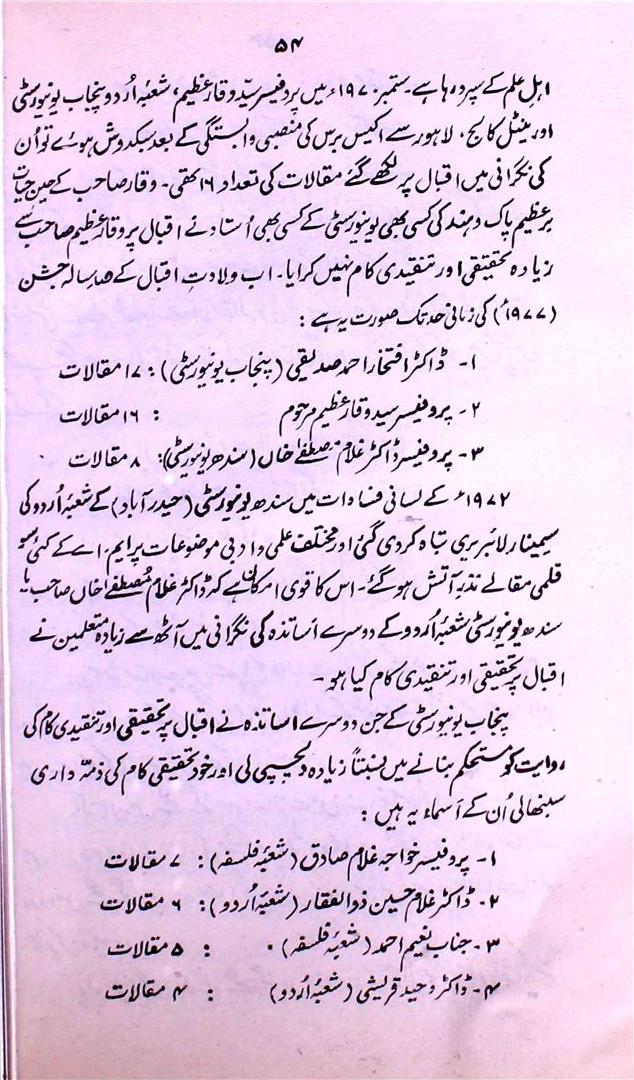 ۵۴
اہل علم کے سپرد رہا ہے۔ ستمبر ۱۹۷۰ء میں پروفیسر سیّد وقار عظیم، شعبۂ اُردو پنجاب یونیورسٹی
اورینٹل کالج، لاہور سے اکیس برس کی منصبی وابستگی کے بعد سبکدوش ہوئے تو اُن
کی نگرانی میں اقبال پر لکھے گئے مقالات کی تعداد ۱۶ تھی۔ وقار صاحب کے حین حیات
برعظیم پاک و ہند کی کسی بھی یونیورسٹی کے کسی بھی اُستاد نے اقبال پر وقار عظیم صاحب سے
زیادہ تحقیقی اور تنقیدی کام نہیں کرایا۔ اب ولادتِ اقبال کے صد سالہ جشن
(۱۹۷۷ء) کی زمانی حد تک صورت یہ ہے :
۱- ڈاکٹر افتخار احمد صدیقی (پنجاب یونیورسٹی) : ۱۷ مقالات
۲- پروفیسر سید وقار عظیم مرحوم : ۱۶ مقالات
۳- پروفیسر ڈاکٹر غلام مصطفےٰ خاں (سندھ یونیورسٹی): ۸ مقالات
۱۹۷۲ء کے لسانی فسادات میں سندھ یونیورسٹی (حیدر آباد) کے شعبۂ اُردو کی
سیمینار لائبریری تباہ کر دی گئی اور مختلف علمی و ادبی موضوعات پر ایم۔ اے کے کئی سو
قلمی مقالے نذرِ آتش ہو گئے۔ اس کا قوی امکان ہے کہ ڈاکٹر غلام مُصطفےٰ خاں صاحب یا
سندھ یونیورسٹی شعبۂ اُردو کے دوسرے اساتذہ کی نگرانی میں آٹھ سے زیادہ متعلمین نے
اقبال پر تحقیقی اور تنقیدی کام کیا ہو۔
پنجاب یونیورسٹی کے جن دوسرے اساتذہ نے اقبال پر تحقیقی اور تنقیدی کام کی
روایت کو مستحکم بنانے میں نسبتاً زیادہ دلچسپی لی اور خود تحقیقی کام کی ذمّہ داری
سنبھالی اُن کے اَسماء یہ ہیں :
۱- پروفیسر خواجہ غلام صادق (شعبۂ فلسفہ) : ۷ مقالات
۲- ڈاکٹر غلام حسین ذوالفقار (شعبۂ اُردو) : ۶ مقالات
۳- جناب نعیم احمد (شعبۂ فلسفہ) : ۵ مقالات
۴- ڈاکٹر وحید قریشی (شعبۂ اُردو) : ۴ مقالات